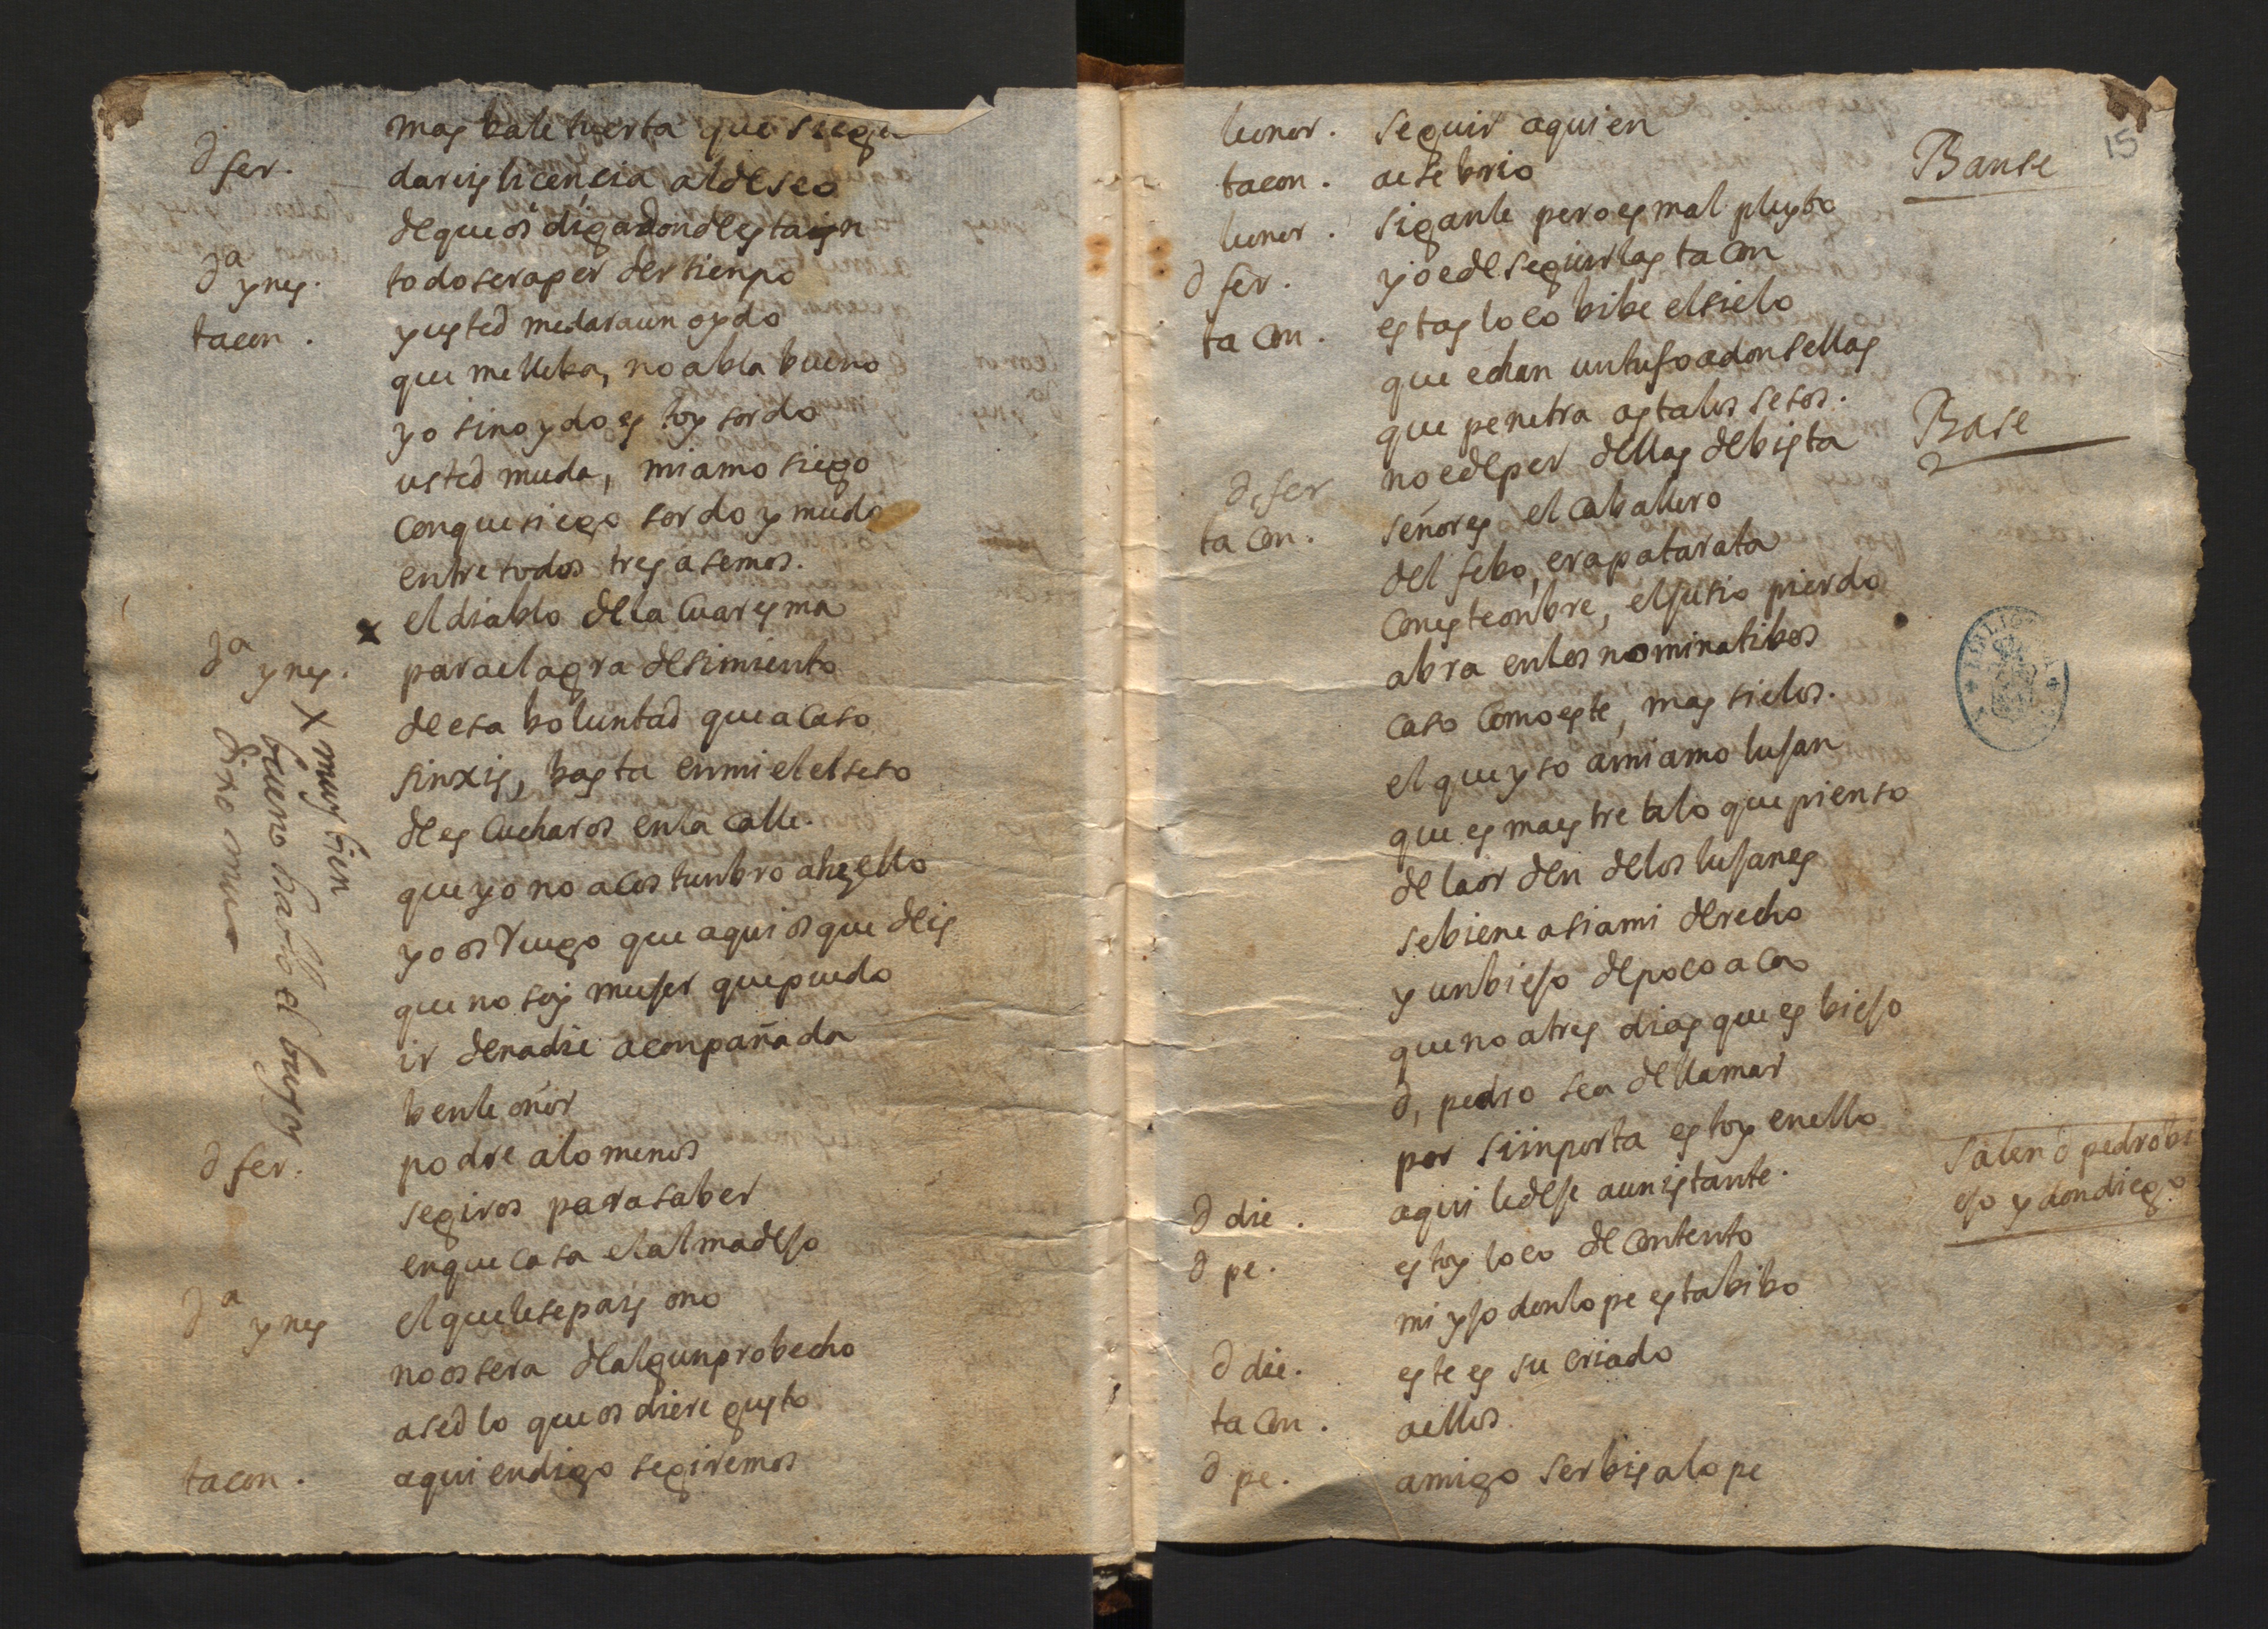 mas bale tuerta que siega
d fer. dareys licencia al deseo
de que os diga donde estays
dª ynes. todo sera perder tienpo
tacon. y usted me dara un oydo
que me lleba, no abla bueno
yo sin oydo estoy sordo
usted muda, mi amo siego
con que siego sordo y mudo
entre todos tres asemos.
x el diablo de la cuaresma
dª ynes. para el agradesimiento
de esa boluntad que acaso
basta en mi el eseso
de escucharos en la calle.
que yo no acostunbro a hasello
yo os ruego que aqui os quedeis
que no soy muger que puedo
ir de nadie aconpañada
ben leonor
d fer. podre a lo menos
segiros para saber
en que casa el alma dejo
dª ynes el que le sepays o no
no os sera de algun probecho
ased lo que os diere gusto
tacon. a quien digo segiremos
x muy bien
bueno
dixo
15
leonor. seguir a quien
tacon. a ese brio
Banse
leonor. siganle pero es mal pleyto
d fer. yo e de seguirlas tacon
tacon. estas loco bibe el sielo
que echan un tufo a donsellas
que penetra asta los sesos.
d, fer no e de perdellas de bista
Base
tacon. señores el caballero
del febo, era patarata
con este onbre, el juisio pierdo
abra en los nominatibos
caso como este, mas sielos.
el que yso a mi amo lujan
que es maestre a lo que pienso
de la orden de los lujanes
se biene asia mi derecho
y un biejo de poco aca
que no a tres dias que es biejo
d, pedro sea de llamar
por si inporta estoy en ello
Salen d pedro bi
ejo y don diego
d die. aqui le deje a un istante.
d pe. estoy loco de contento
mi yjo don lope esta bibo
d die. este es su criado
tacon. a ellos
d pe. amigo serbis a lope